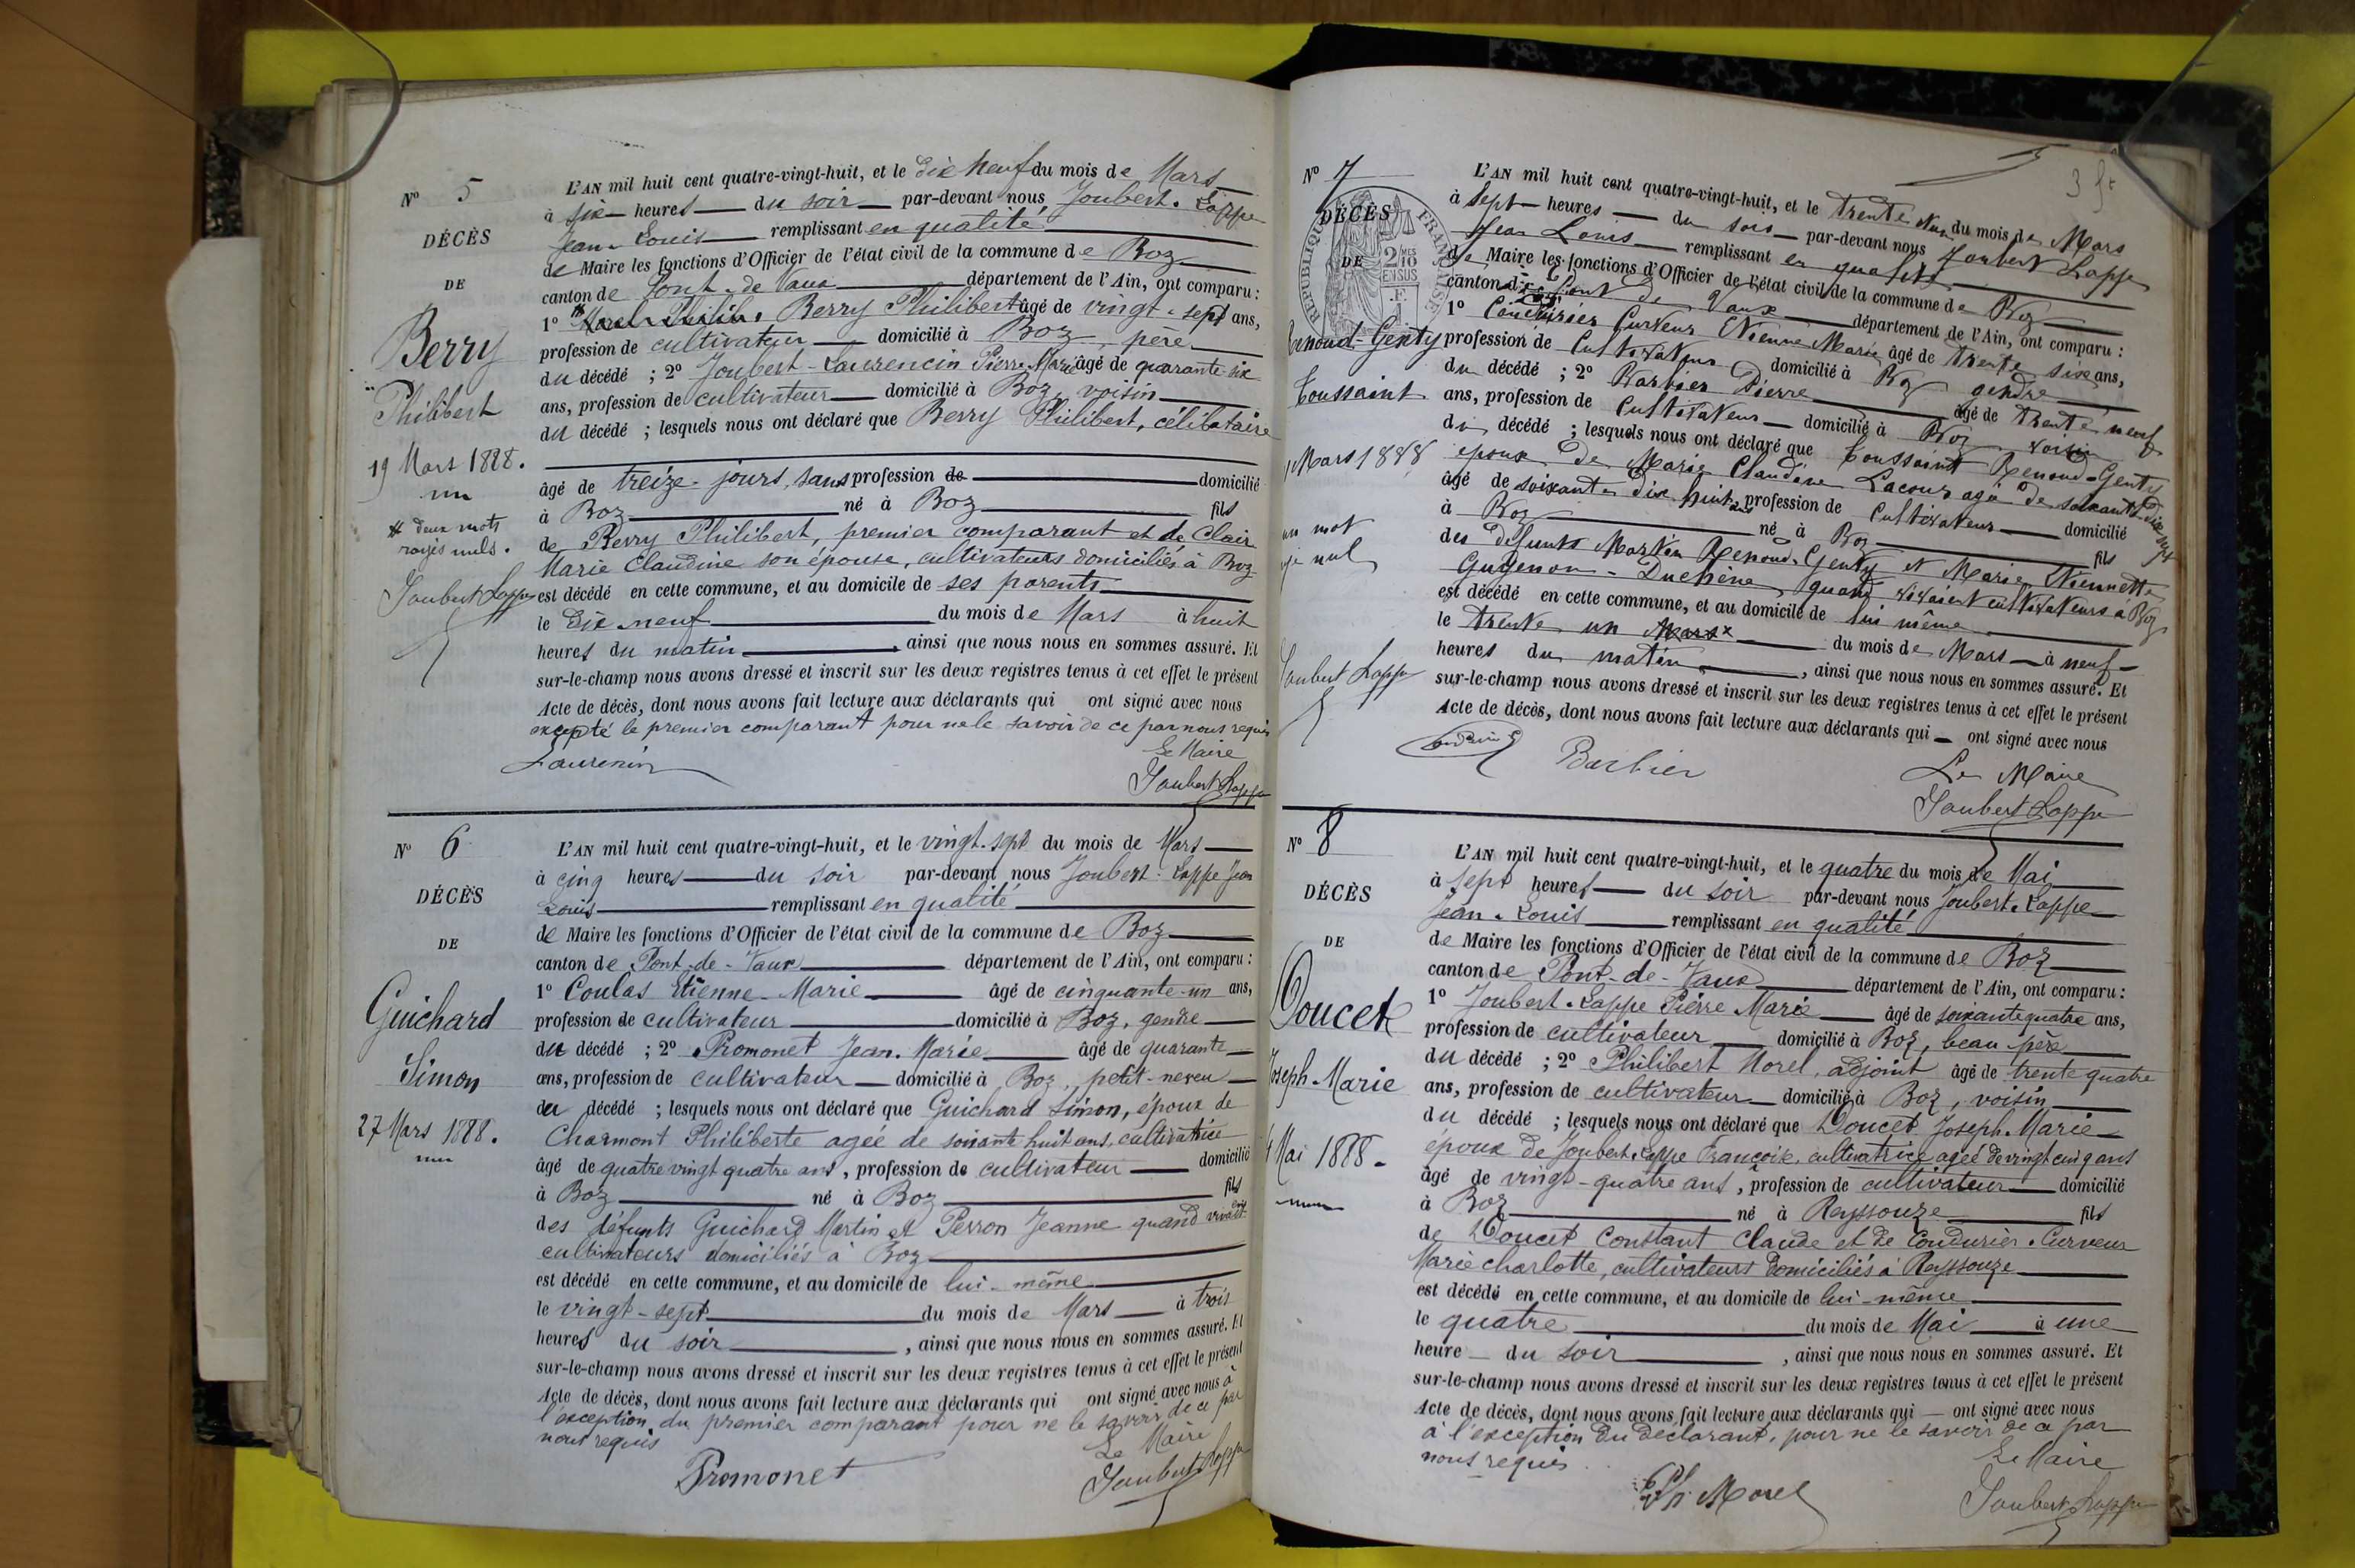 N° 5
DÉCÈS
DE
Berry
Philibert
19 Mars 1888.
# deux mots
rayés nuls.
Joubert Lappe
L'AN mil huit cent quatre-vingt-huit, et le dix neuf du mois de Mars
à six heures du soir par-devant nous Joubert. Lappe
Jean-Louis remplissant en qualité
de Maire les fonctions d'Officier de l'état civil de la commune de Boz
canton de Pont-de-Vaux département de l'Ain, ont comparu :
1° # Berry Philibert âgé de vingt-sept ans,
profession de cultivateur domicilié à Boz, père
du décédé ; 2° Joubert-Laurencin Pierre Marie âgé de quarante-six
ans, profession de cultivateur domicilié à Boz, voisin
du décédé ; lesquels nous ont déclaré que Berry Philibert, célibataire
âgé de treize-jours, sans profession de domicilié
à Boz né à Boz fils
de Berry Philibert, premier comparant et de Clair
Marie Claudine son épouse, cultivateurs domiciliés à Boz
est décédé en cette commune, et au domicile de ses parents
le dix-neuf du mois de Mars à huit
heures du matin, ainsi que nous nous en sommes assuré. Et
sur-le-champ nous avons dressé et inscrit sur les deux registres tenus à cet effet le présent
Acte de décès, dont nous avons fait lecture aux déclarants qui ont signé avec nous
excepté le premier comparant pour ne le savoir de ce par nous requis
Le Maire
Laurencin
Joubert Lappe
N° 6
DÉCÈS
DE
Guichard
Simon
27 Mars 1888.
L'AN mil huit cent quatre-vingt-huit, et le vingt-sept du mois de Mars
à cinq heures du soir par-devant nous Joubert-Lappe Jean
Louis remplissant en qualité
de Maire les fonctions d'Officier de l'état civil de la commune de Boz
canton de Pont-de-Vaux département de l'Ain, ont comparu :
1° Coulas Etienne-Marie âgé de cinquante-un ans,
profession de cultivateur domicilié à Boz, gendre
du décédé ; 2° Promonet Jean-Marie âgé de quarante
ans, profession de cultivateur domicilié à Boz, petit-neveu
du décédé ; lesquels nous ont déclaré que Guichard Simon, époux de
Charmont Philiberte agée de soixante huit ans, cultivatrice
âgé de quatre vingt quatre ans, profession de cultivateur domicilié
à Boz né à Boz fils
des défunts Guichard Martin et Perron Jeanne quand vivaient
cultivateurs domiciliés à Boz
est décédé en cette commune, et au domicile de lui-même
le vingt-sept du mois de Mars à trois
heures du soir, ainsi que nous nous en sommes assuré. Et
sur-le-champ nous avons dressé et inscrit sur les deux registres tenus à cet effet le présent
Acte de décès, dont nous avons fait lecture aux déclarants qui ont signé avec nous à
l'exception du premier comparant pour ne le savoir de ce par
nous requis
Le Maire
Promonet
Joubert Lappe
3
N° 7
DÉCÈS
DE
RÉPUBLIQUE FRANÇAISE
2/10 EN SUS
Renoud-Genty
Toussaint
Mars 1888
un mot
nul
Joubert Lappe
L'AN mil huit cent quatre-vingt-huit, et le trente un du mois de Mars
à sept heures du soir par-devant nous Joubert Lappe
Jean Louis remplissant en qualité
de Maire les fonctions d'Officier de l'état civil de la commune de Boz
canton de Pont de Vaux département de l'Ain, ont comparu :
1° Condurier Curveur Etienne Marie âgé de trente six ans,
profession de Cultivateur domicilié à Boz gendre
du décédé ; 2° Barbier Pierre âgé de trente neuf
ans, profession de Cultivateur domicilié à Boz voisin
du décédé ; lesquels nous ont déclaré que Toussaint Renoud-Genty
époux de Marie Claudine Lacour agée de soixante-dix
âgé de soixante dix huit ans, profession de Cultivateur domicilié
à Boz né à Boz fils
des défunts Martin Renoud-Genty et Marie Niennette
Gugenon-Duchène, quand vivaient cultivateurs à Boz
est décédé en cette commune, et au domicile de lui même
le trente un Mars x du mois de Mars à neuf
heures du matin, ainsi que nous nous en sommes assuré. Et
sur-le-champ nous avons dressé et inscrit sur les deux registres tenus à cet effet le présent
Acte de décès, dont nous avons fait lecture aux déclarants qui ont signé avec nous
Barbier
Le Maire
Joubert Lappe
N° 8
DÉCÈS
DE
Doucet
Joseph-Marie
4 Mai 1888.
L'AN mil huit cent quatre-vingt-huit, et le quatre du mois de Mai
à sept heures du soir par-devant nous Joubert-Lappe
Jean-Louis remplissant en qualité
de Maire les fonctions d'Officier de l'état civil de la commune de Boz
canton de Pont-de-Vaux département de l'Ain, ont comparu :
1° Joubert-Lappe Pierre Marie âgé de soixante quatre ans,
profession de cultivateur domicilié à Boz, beau-père
du décédé ; 2° Philibert Morel, adjoint âgé de trente quatre
ans, profession de cultivateur domicilié à Boz, voisin
du décédé ; lesquels nous ont déclaré que Doucet Joseph-Marie
époux de Joubert-Lappe Françoise, cultivatrice agée de vingt cinq ans
âgé de vingt-quatre ans, profession de cultivateur domicilié
à Boz né à Reyssouze fils
de Doucet Constant Claude et de Condurier-Curveur
Marie Charlotte, cultivateurs domiciliés à Reyssouze
est décédé en cette commune, et au domicile de lui-même
le quatre du mois de Mai à une
heure du soir, ainsi que nous nous en sommes assuré. Et
sur-le-champ nous avons dressé et inscrit sur les deux registres tenus à cet effet le présent
Acte de décès, dont nous avons fait lecture aux déclarants qui ont signé avec nous
à l'exception du déclarant, pour ne le savoir de ce par
nous requis.
Le Maire
Ph. Morel
Joubert Lappe